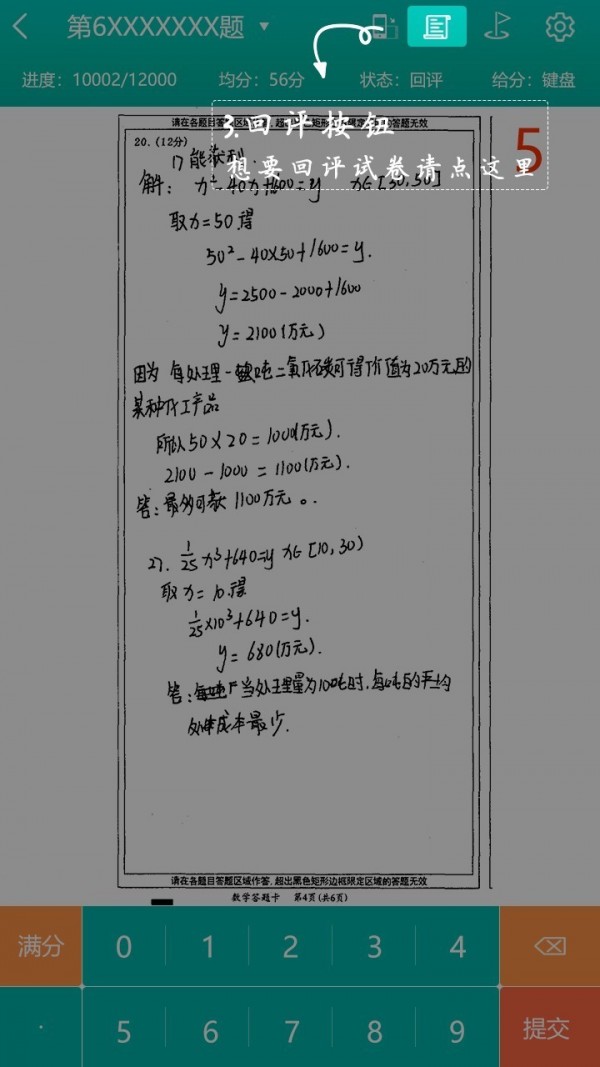 第6XXXXXXX题
进度：10002/12000 均分：56分 状态：回评 给分：键盘
请在各题目答题区域
超出
矩形
限定区域的答题无效
3.回评按钮
想要回评试卷请点这里
5
20.（12分）
1) 能获利.
解： x²-40x+1600=y x∈[30,50]
取x=50.得
50²-40×50+1600=y.
y=2500-2000+1600
y=2100(万元)
因为 每处理一吨二氧化碳可得价值为20万元的
某种化工产品
所以50×20=1000(万元).
2100-1000=1100(万元).
答：最多可获 1100万元。.
27. 1/25 x³+640=y x∈[10,30)
取x=10.得
1/25×10³+640=y.
y=680(万元).
答：当处理量为10吨时,每吨的平均
处理成本最少.
请在各题目答题区域作答,超出黑色矩形边框限定区域的答题无效
数学答题卡 第4页(共6页)
满分 0 1 2 3 4
. 5 6 7 8 9 提交